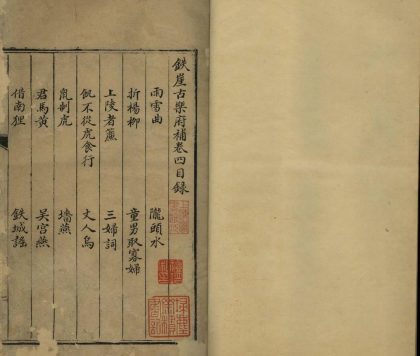 鉄崖古樂府補卷四目錄
雨雪曲 隴頭水
折楊柳 童男取寡婦
上陵者篇 三婦詞
飢不從虎食行 丈人烏
鼠制虎 墻燕
君馬黃 吳宮燕
借南狸 鉄城謠